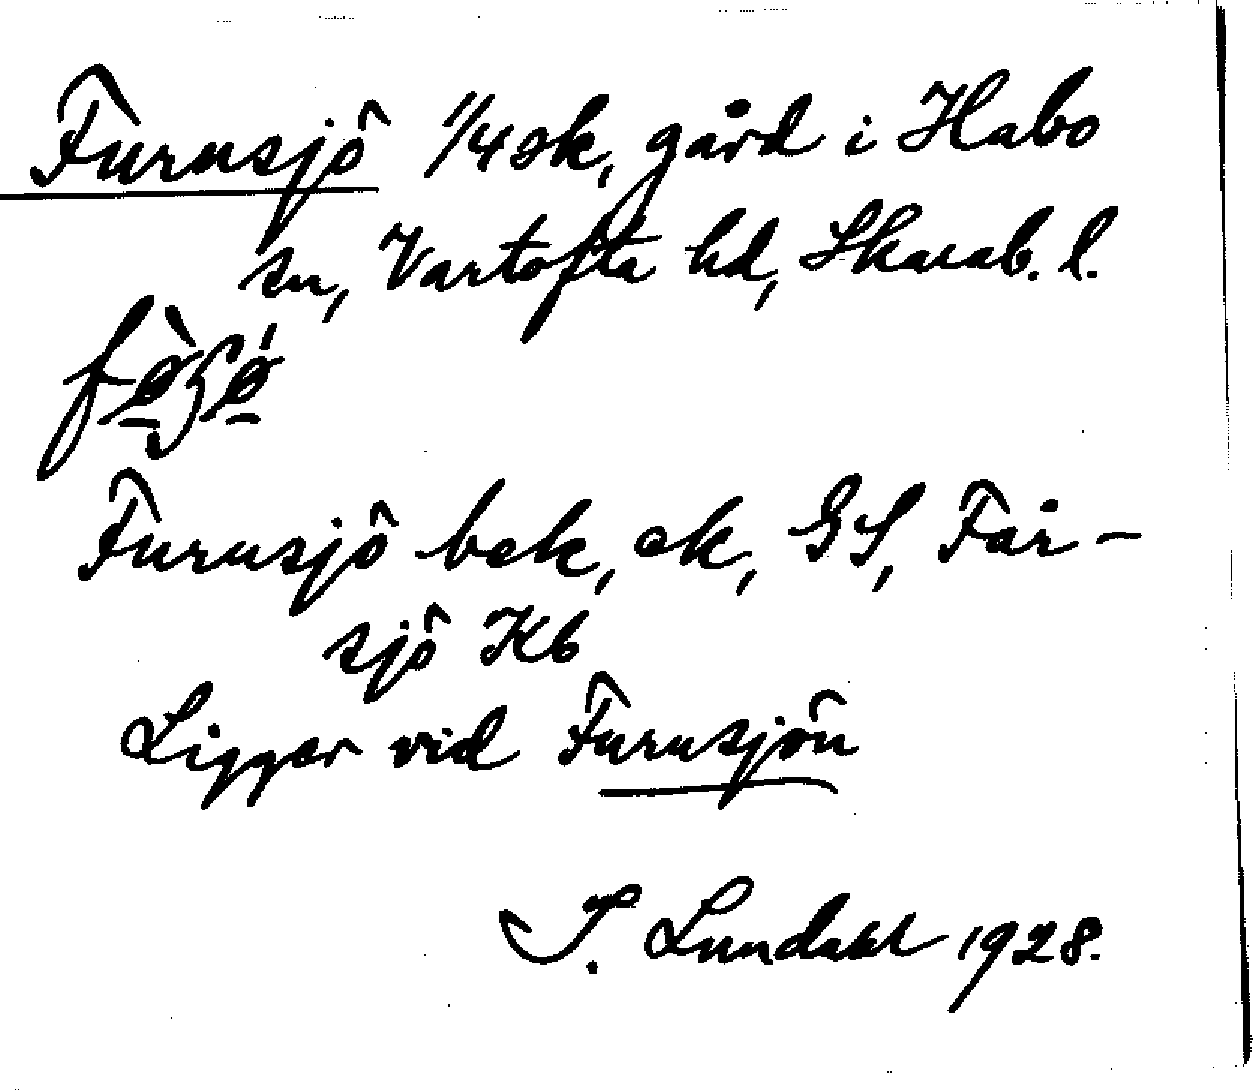 Furusjö 1/4 sk, gård i Habo
sn, Vartofta hd, Skarab. l.
Furusjö bek, ek, GS, Får-
sjö Kb
Ligger vid Furusjön
I. Lundahl 1928.